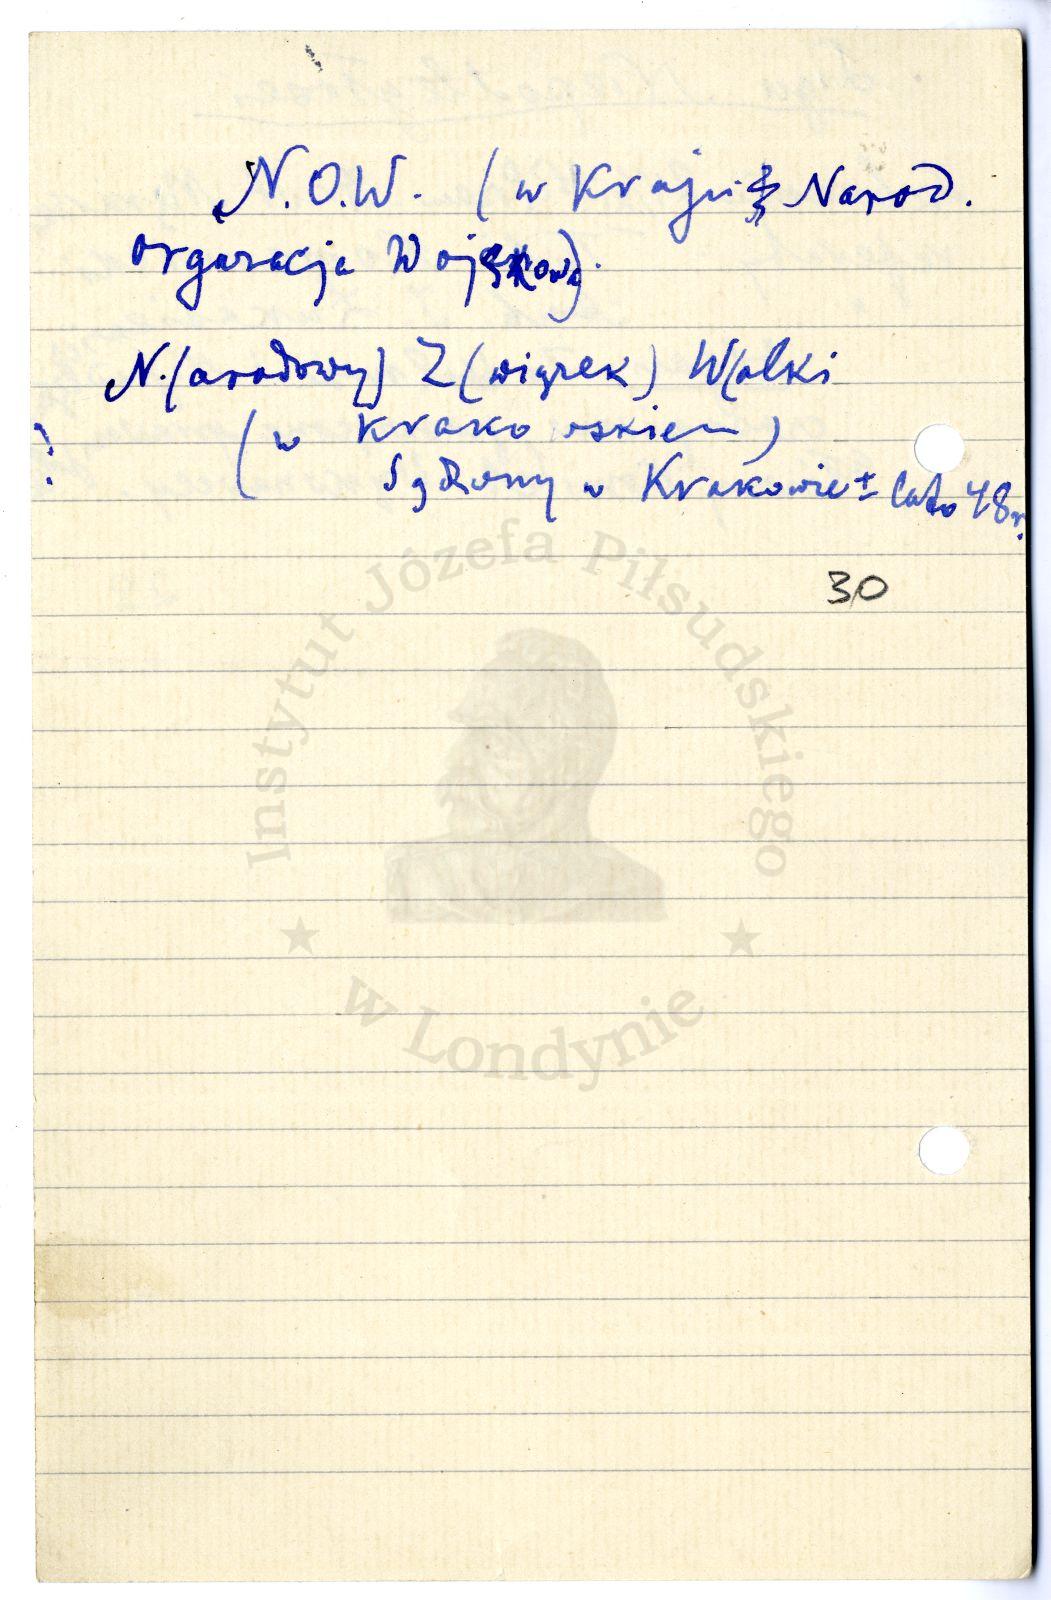 N.O.W. (w Kraju Narod.
Organizacja Wojskowa).
N.(arodowy) Z(wiązek) W(alki
! (w Krakowskiem)
Sądzony w Krakowie ± lato 48 r.
30
Instytut Józefa Piłsudskiego
w Londynie